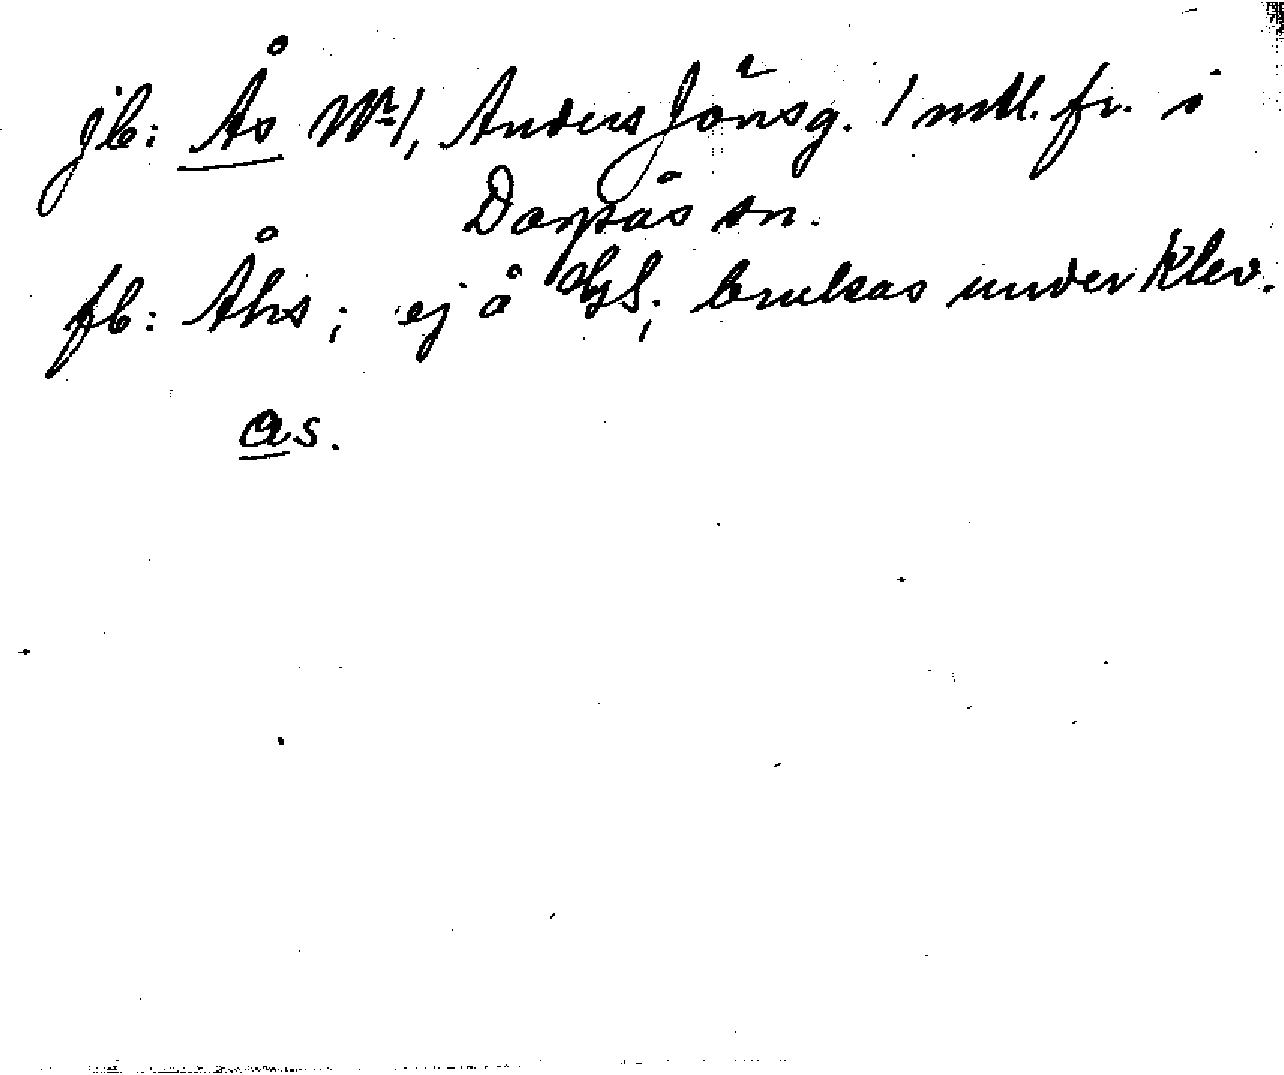 jb: Ås No 1, Anders Jönsg. 1 mtl. fr. i
Daretås sn.
fb: Åhs; ej å GS; brukas under Klev.
as.